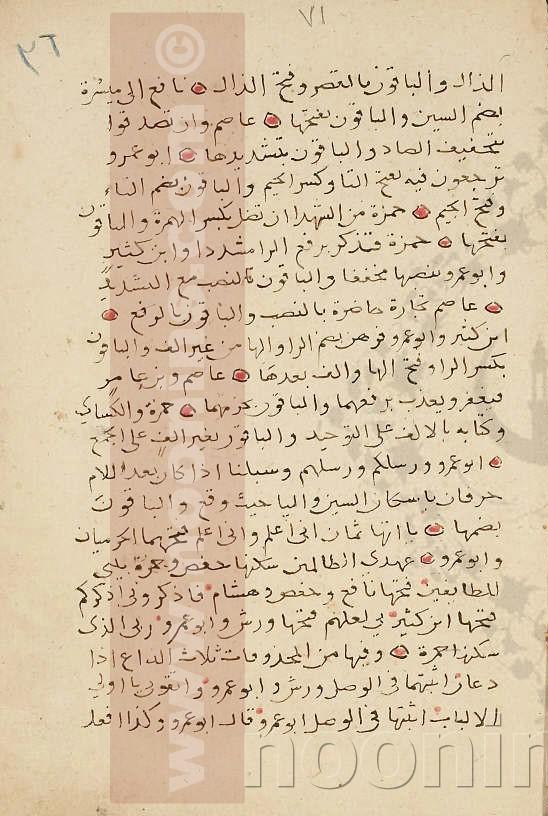 ٧١
٣٦
الذال والباقون بالقصر وفتح الذال نافع الى ميسرة
بضم السين والباقون بفتحها عاصم وان تصدقوا
بتخفيف الصاد والباقون بتشديدها ابو عمرو
ترجعون فيه بفتح التا وكسر الجيم والباقون بضم التاء
وفتح الجيم حمزة من الشهدا ان تضل بكسر الهمزة والباقون
بفتحها حمزة فتذكر برفع الرا مشددا وابن كثير
وابو عمرو بنصبها مخففا والباقون بالنصب مع التشديد
عاصم تجارة حاضرة بالنصب والباقون بالرفع
ابن كثير وابو عمرو فرهن بضم الرا والها من غير الف والباقون
بكسر الرا وفتح الها والف بعدها عاصم وابن عامر
فيغفر ويعذب برفعهما والباقون بجزمهما حمزة والكسائي
وكتابه بالالف على التوحيد والباقون بغير الف على الجمع
ابو عمرو ورسلكم ورسلهم وسبلنا اذا كان بعد اللام
حرفان باسكان السين والبا حيث وقع والباقون
بضمها يااتها ثمان انى اعلم وانى اعلم فتحهما الحرميان
وابو عمرو عهدى الظالمين سكنها حفص وحمزة بيتى
للطايفين فتحها نافع وحفص وهشام فاذكرونى اذكركم
فتحها ابن كثير بى لعلهم فتحها ورش وابو عمرو ربى الذى
سكنها حمزة وفيها من المحذوفات ثلاث الداع اذا
دعان اثبتهما فى الوصل ورش وابو عمرو واتقونى يا اولى
الالباب اثبتها فى الوصل ابو عمرو قال ابو عمرو وكذا افعل
noonin